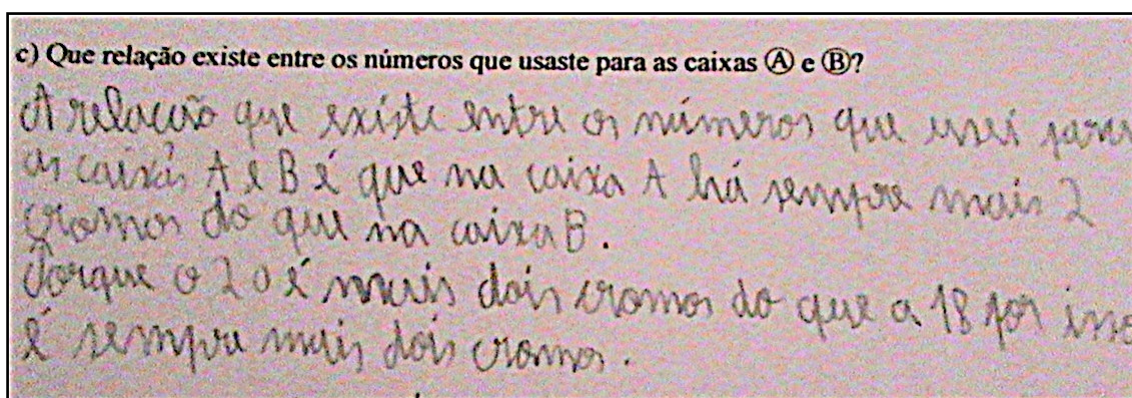 c) Que relação existe entre os números que usaste para as caixas Ⓐ e Ⓑ?
A relacção que existe entre os números que usei para
as caixas A e B é que na caixa A há sempre mais 2
cromos do que na caixa B.
Porque o 20 é mais dois cromos do que a 18 por isso
é sempre mais dois cromos.